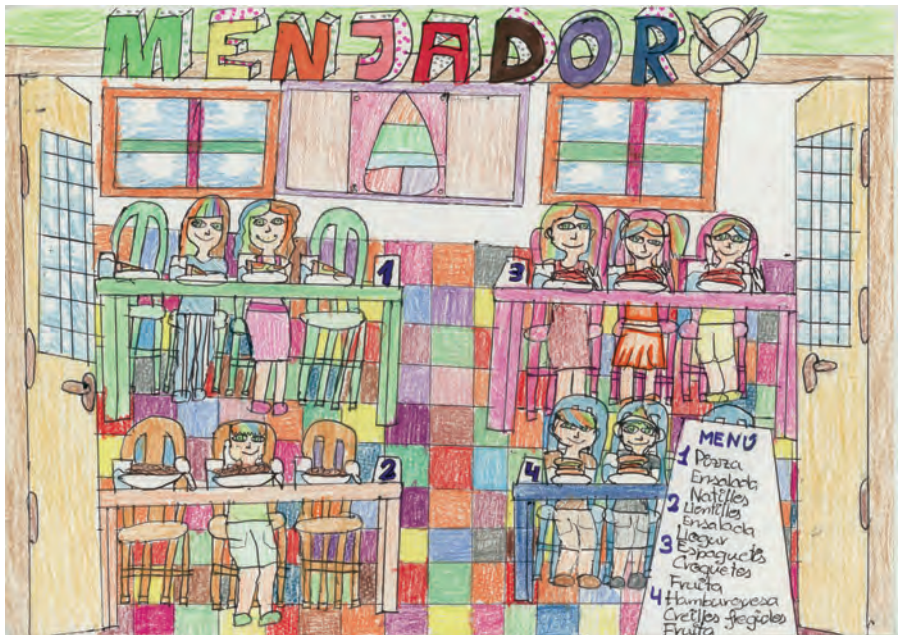 MENJADOR
1
3
2
4
MENÚ
1 Pizza
Ensalada
Natilles
2 Llentilles
Ensalada
Iogur
3 Espaguetis
Croquetes
Fruita
4 Hamburguesa
Creilles fregides
Fruita